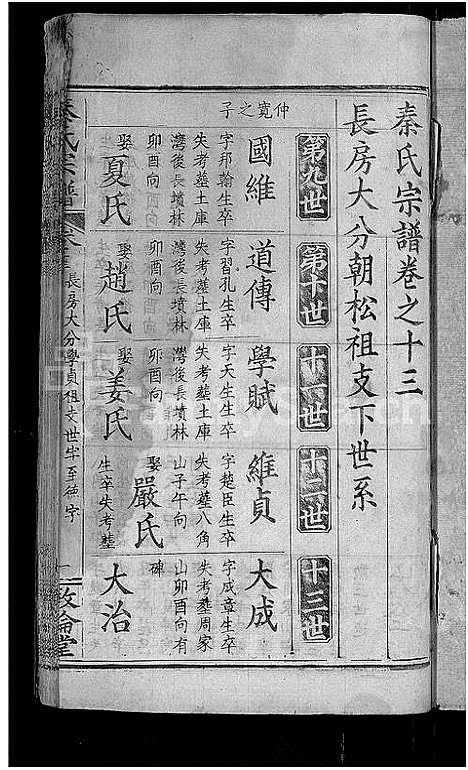 秦氏宗譜卷之十三
長房大分朝松祖支下世系
第九世
第十世
十一世
十二世
十三世
仲寬之子
國維
字邦翰生卒
失考塟土庫
灣後長墳林
卯酉向
娶夏氏
道傳
字習孔生卒
失考塟土庫
灣後長墳林
卯酉向
娶趙氏
學賦
字天生生卒
失考塟土庫
灣後長墳林
卯酉向
娶姜氏
維貞
字楚臣生卒
失考塟八角
山子午向
娶嚴氏
生卒失考塟
大成
字成章生卒
失考塟周家
山卯酉向有
碑
大治
秦氏宗譜
長房大分學貞祖支世字至德字
一
敦倫堂